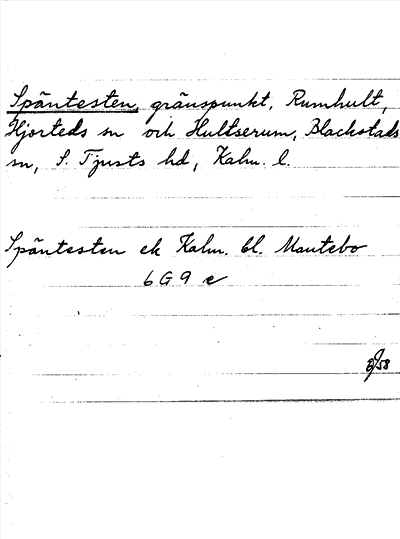 Späntesten, gränspunkt, Rumhult,
Hjorteds sn och Hultserum, Blackstads
sn, S. Tjusts hd, Kalm. l.
Späntesten ek Kalm. bl. Mantebo
6 G 9 e